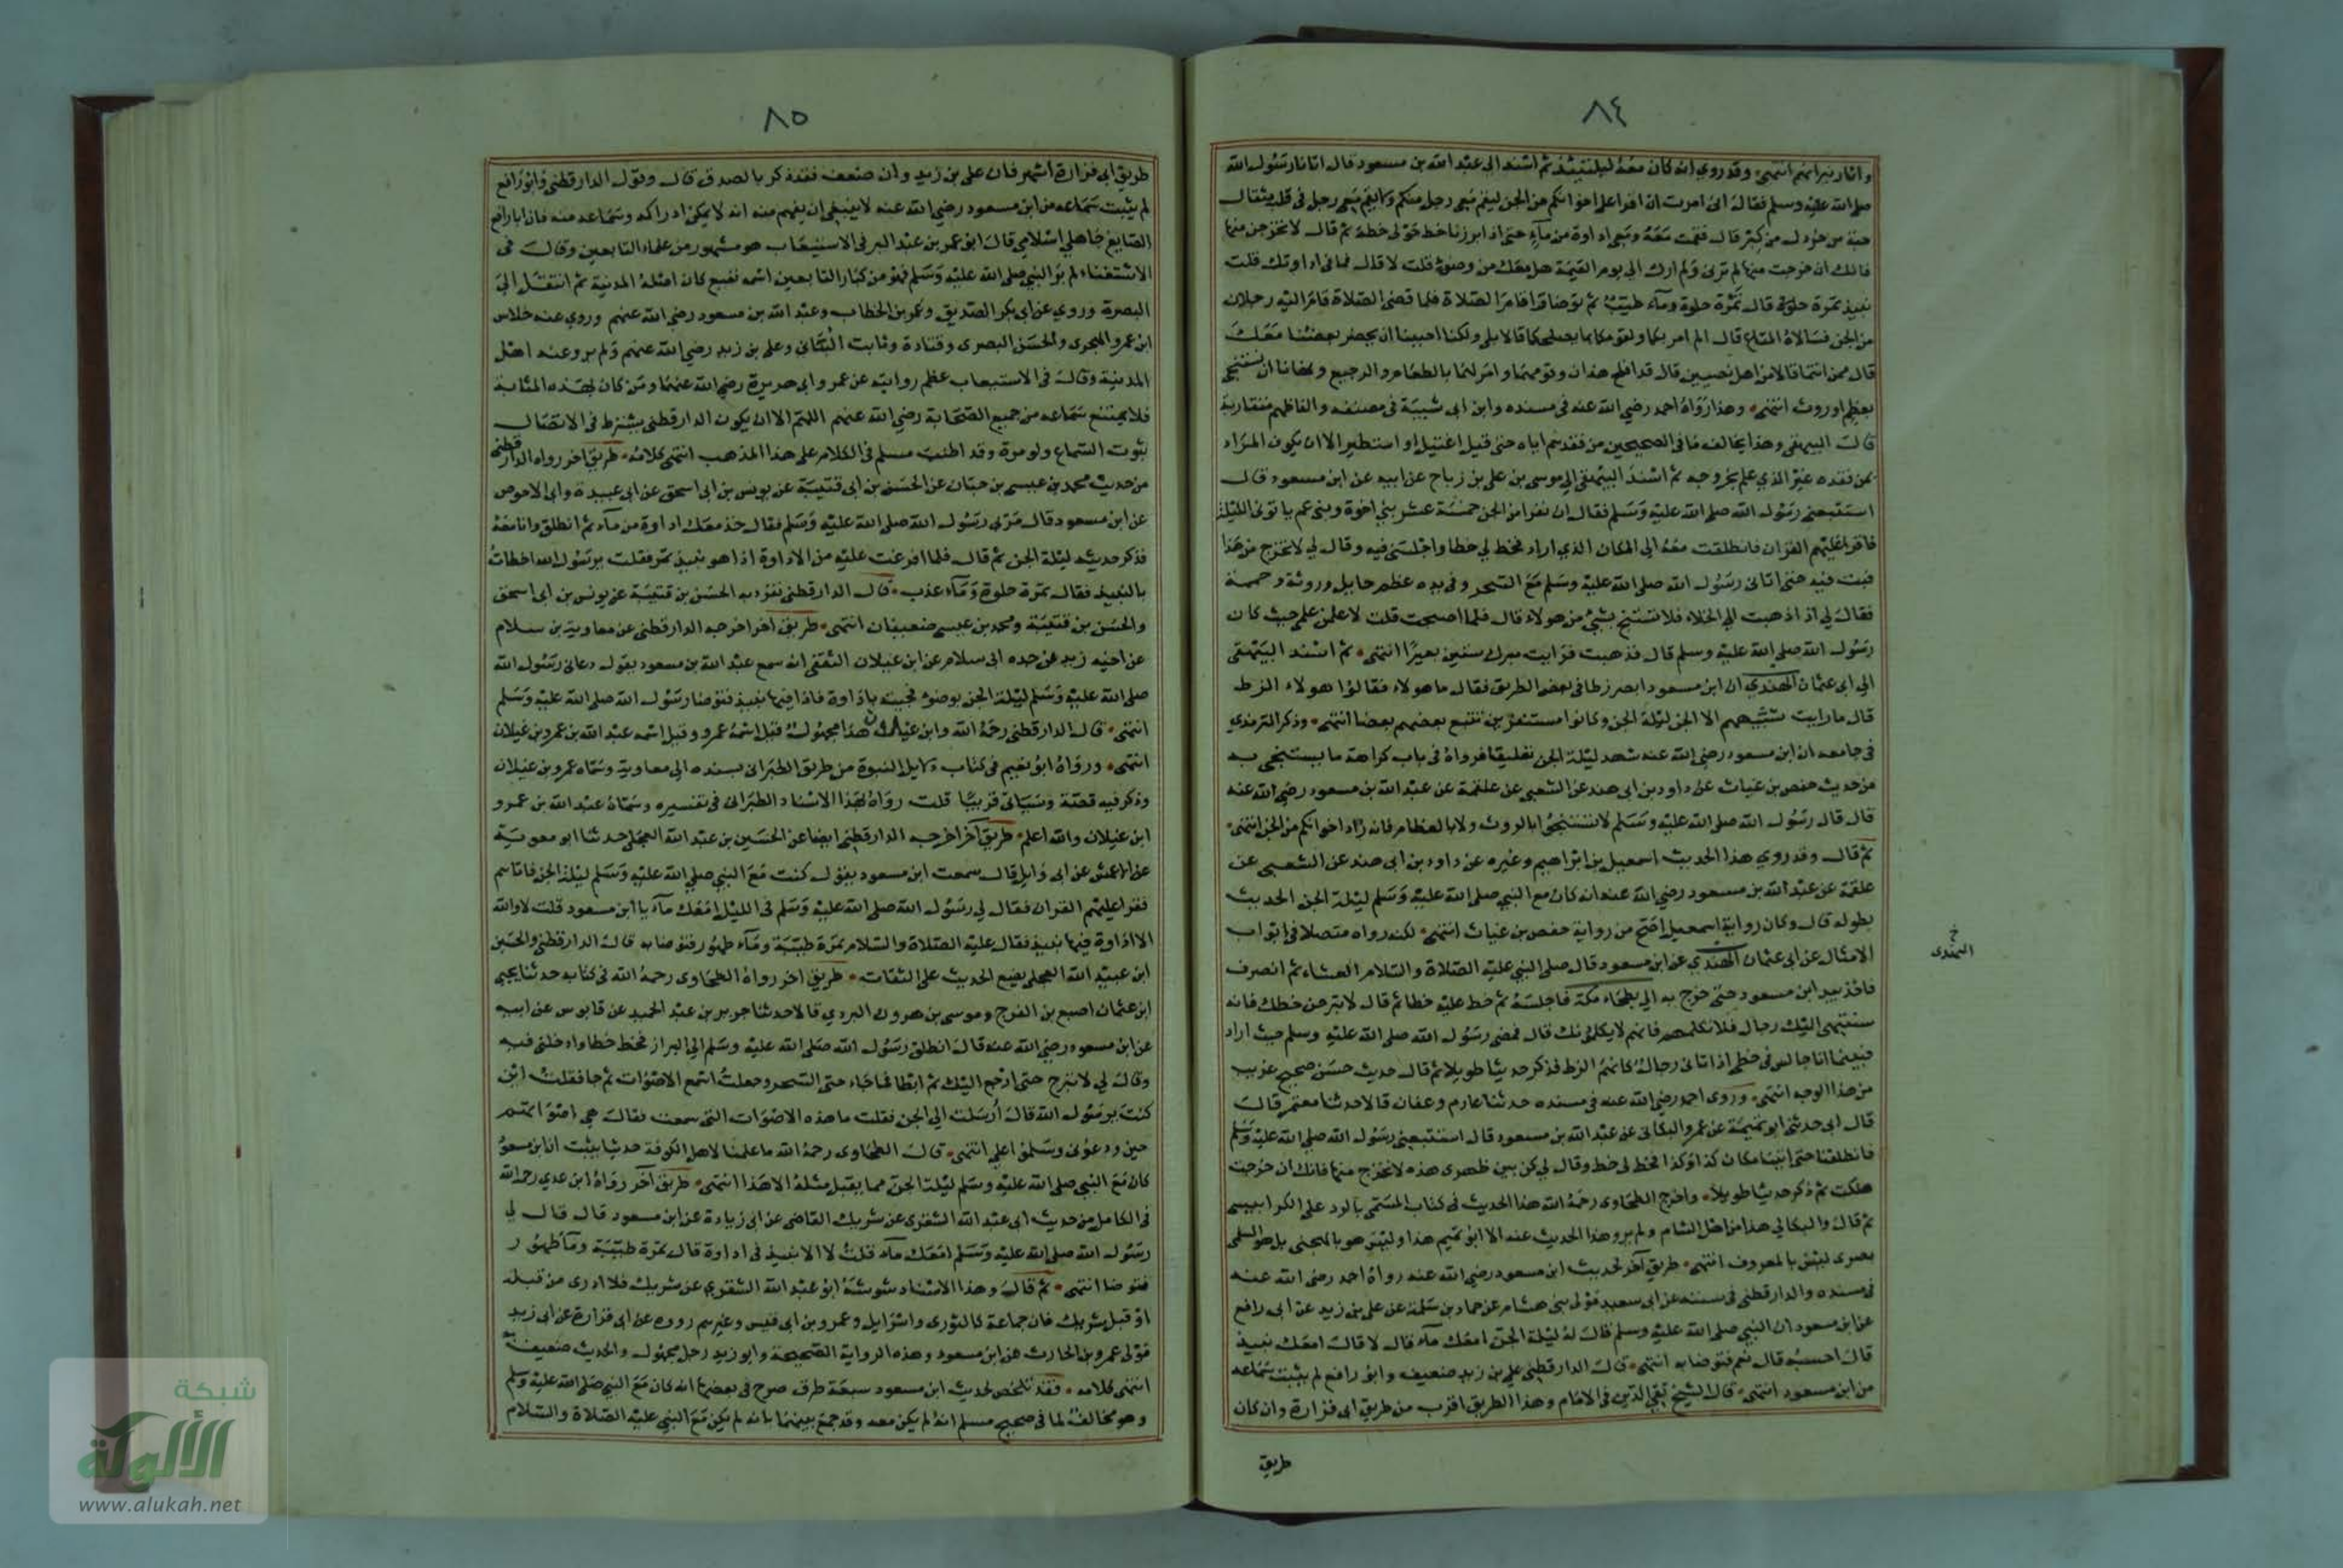 ٨٤
وآثار نيرانهم انتهى وقد روي انه كان معه ليلتئذ ثم اسند الى عبد الله بن مسعود قال اتانا رسول الله
صلى الله عليه وسلم فقال انى امرت ان اقرا على اخوانكم من الجن ليقم معى رجل منكم ولا يقم معى رجل فى قلبه مثقال
حبة من خردل من كبر قال فقمت معه ومعى اداوة من ماء حتى اذا برزنا خط حولى خطة ثم قال لا تخرجن منها
فانك ان خرجت منها لم ترنى ولم ارك الى يوم القيمة هل معك من وضوء قلت لا قال فما فى اداوتك قلت
نبيذ تمرة حلوة قال تمرة حلوة وماء طيب ثم توضا واقام الصلاة فلما قضى الصلاة قام اليه رجلان
من الجن فسالاه المتاع قال الم امر لكما ولقومكما بما يصلحكما قالا بلى ولكنا احببنا ان يحضر بعضنا معك
قال ممن انتما قالا من اهل نصيبين قال قد افلح هذان وقومهما وامر لهما بالطعام والرجيع ونهانا ان نستنجى
بعظم او روث انتهى وهذا رواه احمد رضي الله عنه فى مسنده وابن ابى شيبة فى مصنفه والفاظهم متقاربة
قال البيهقى وهذا يخالف ما فى الصحيحين من فقدهم اياه حتى قيل اغتيل او استطير الا ان يكون المراد
بمن فقده غير الذي علم بخروجه ثم اسند البيهقى الى موسى بن على بن رباح عن ابيه عن ابن مسعود قال
استتبعنى رسول الله صلى الله عليه وسلم فقال ان نفرا من الجن خمسة عشر بنى اخوة وبنى عم ياتونى الليلة
فاقرا عليهم القران فانطلقت معه الى المكان الذي اراد فخط لى خطا واجلسنى فيه وقال لى لا تخرج من هذا
فبت فيه حتى اتانى رسول الله صلى الله عليه وسلم مع السحر وفى يده عظم حايل وروثة وحممة
فقال لى اذا ذهبت الى الخلاء فلا تستنج بشئ من هولاء قال فلما اصبحت قلت لاعلمن علمى حيث كان
رسول الله صلى الله عليه وسلم قال فذهبت فرايت مبرك ستين بعيرا انتهى ثم اسند البيهقى
الى ابى عثمان الهندي ان ابن مسعود ابصر زطا فى بعض الطريق فقال ما هولاء فقالوا هولاء الزط
قال ما رايت شبههم الا الجن ليلة الجن وكانوا مستنفرين يتبع بعضهم بعضا انتهى وذكر الترمذي
فى جامعه ان ابن مسعود رضي الله عنه شهد ليلة الجن تعليقا فرواه فى باب كراهة ما يستنجى به
من حديث حفص بن غياث عن داود بن ابى هند عن الشعبى عن علقمة عن عبد الله بن مسعود رضي الله عنه
قال قال رسول الله صلى الله عليه وسلم لا تستنجوا بالروث ولا بالعظام فانه زاد اخوانكم من الجن انتهى
ثم قال وقد روي هذا الحديث اسمعيل بن ابراهيم وغيره عن داود بن ابى هند عن الشعبى عن
علقمة عن عبد الله بن مسعود رضي الله عنه انه كان مع النبي صلى الله عليه وسلم ليلة الجن الحديث
بطوله قال وكان رواية اسمعيل اصح من رواية حفص بن غياث انتهى لكنه رواه متصلا فى ابواب
الامثال عن ابى عثمان الهندي عن ابن مسعود قال صلى النبي عليه الصلاة والسلام العشاء ثم انصرف
خ
النهدى
فاخذ بيد ابن مسعود حتى خرج به الى بطحاء مكة فاجلسه ثم خط عليه خطا ثم قال لا تبرحن خطك فانه
سينتهى اليك رجال فلا تكلمهم فانهم لا يكلمونك قال فمضى رسول الله صلى الله عليه وسلم حيث اراد
فبينما انا جالس فى خطى اذ اتانى رجال كانهم الزط فذكر حديثا طويلا ثم قال حديث حسن صحيح غريب
من هذا الوجه انتهى وروى احمد رضي الله عنه فى مسنده حدثنا عارم وعفان قالا حدثنا معتمر قال
قال ابى حدثنى ابو تميمة عن عمرو البكالى عن عبد الله بن مسعود قال استتبعنى رسول الله صلى الله عليه وسلم
فانطلقنا حتى اتينا مكان كذا وكذا فخط لى خط وقال لى كن بين ظهرى هذه لا تخرج منها فانك ان خرجت
هلكت ثم ذكر حديثا طويلا واخرج الطحاوى رحمه الله هذا الحديث فى كتاب المسمى بالرد على الكرابيسى
ثم قال والبكالى هذا من اهل الشام ولم يرو هذا الحديث عنه الا ابو تميم هذا وليس هو بالهجيمى بل هو السلمى
بصرى ليس بالمعروف انتهى طريق آخر لحديث ابن مسعود رضي الله عنه رواه احمد رضى الله عنه
فى مسنده والدارقطنى فى سننه عن ابى سعيد مولى بنى هشام عن حماد بن سلمة عن على بن زيد عن ابى رافع
عن ابن مسعود ان النبي صلى الله عليه وسلم قال له ليلة الجن امعك ماء قال لا قال امعك نبيذ
قال احسبه قال نعم فتوضا به انتهى قال الدارقطنى على بن زيد ضعيف وابو رافع لم يثبت سماعه
من ابن مسعود انتهى قال الشيخ تقى الدين فى الامام وهذا الطريق اقرب من طريق ابى فزارة وان كان
طريق
٨٥
طريق ابى فزارة اشهر فان على بن زيد وان ضعف فقد ذكر بالصدق قال وقول الدارقطنى وابو رافع
لم يثبت سماعه من ابن مسعود رضي الله عنه لا ينبغى ان يفهم منه انه لا يمكن ادراكه وسماعه منه فان ابا رافع
الصايغ جاهلى اسلامى قال ابو عمر بن عبد البر فى الاستيعاب هو مشهور من علماء التابعين وقال فى
الاستغناء لم ير النبي صلى الله عليه وسلم فهو من كبار التابعين اسمه نفيع كان اصله المدنية ثم انتقل الى
البصرة وروي عن ابى بكر الصديق وعمر بن الخطاب وعبد الله بن مسعود رضي الله عنهم وروي عنه خلاس
ابن عمرو الهجرى والحسن البصرى وقتادة وثابت البنانى وعلى بن زيد رضي الله عنهم ولم يرو عنه اهل
المدنية وقال فى الاستيعاب عظم روايته عن عمر وابى هريرة رضي الله عنهما ومن كان بهذه المثابة
فلا يمتنع سماعه من جميع الصحابة رضي الله عنهم اللهم الا ان يكون الدارقطنى يشترط فى الاتصال
ثبوت السماع ولو مرة وقد اطنب مسلم فى الكلام على هذا المذهب انتهى كلامه طريق آخر رواه الدارقطنى
من حديث محمد بن عيسى بن حبان عن الحسن بن ابى قتيبة عن يونس بن ابى اسحق عن ابى عبيدة وابى الاحوص
عن ابن مسعود قال مر بى رسول الله صلى الله عليه وسلم فقال خذ معك اداوة من ماء ثم انطلق وانا معه
فذكر حديثه ليلة الجن ثم قال فلما افرغت عليه من الاداوة اذا هو نبيذ تمر فقلت يرسول الله اخطات
بالنبيذ فقال تمرة حلوة وماء عذب قال الدارقطنى تفرد به الحسن بن قتيبة عن يونس بن ابى اسحق
والحسن بن قتيبة ومحمد بن عيسى ضعيفان انتهى طريق آخر اخرجه الدارقطنى عن معاوية بن سلام
عن اخيه زيد عن جده ابى سلام عن ابن غيلان الثقفى انه سمع عبد الله بن مسعود يقول دعانى رسول الله
صلى الله عليه وسلم ليلة الجن بوضوء فجيته باداوة فاذا فيها نبيذ فتوضا رسول الله صلى الله عليه وسلم
انتهى قال الدارقطنى رحمه الله وابن غيلان هذا مجهول قيل اسمه عمرو وقيل اسمه عبد الله بن عمرو بن غيلان
انتهى ورواه ابو نعيم فى كتاب دلايل النبوة من طريق الطبرانى بسنده الى معاوية وسماه عمرو بن غيلان
وذكر فيه قصة وسياتى قريبا قلت رواه بهذا الاسناد الطبرانى فى تفسيره وسماه عبد الله بن عمرو
ابن غيلان والله اعلم طريق آخر اخرجه الدارقطنى ايضا عن الحسين بن عبد الله العجلى حدثنا ابو معوية
عن الاعمش عن ابى وايل قال سمعت ابن مسعود يقول كنت مع النبي صلى الله عليه وسلم ليلة الجن فاتاهم
فقرا عليهم القران فقال لى رسول الله صلى الله عليه وسلم فى الليل امعك ماء يا ابن مسعود قلت لا والله
الا اداوة فيها نبيذ فقال عليه الصلاة والسلام تمرة طيبة وماء طهور فتوضا به قال الدارقطنى والحسين
ابن عبيد الله العجلى يضع الحديث على الثقات طريق آخر رواه الطحاوى رحمه الله فى كتابه حدثنا يحيى
ابن عثمان اصبع بن الفرج وموسى بن هرون البردي قالا حدثنا جرير بن عبد الحميد عن قابوس عن ابيه
عن ابن مسعود رضي الله عنه قال انطلق رسول الله صلى الله عليه وسلم الى البراز فخط خطا وادخلنى فيه
وقال لى لا تبرح حتى ارجع اليك ثم ابطا فما جاء حتى السحر وجعلت اسمع الاصوات ثم جا فقلت اين
كنت يرسول الله قال ارسلت الى الجن فقلت ما هذه الاصوات التى سمعت فقال هى اصواتهم
حين ودعونى وسلموا على انتهى قال الطحاوى رحمه الله ما علمنا لاهل الكوفة حديثا يثبت ان ابن مسعود
كان مع النبي صلى الله عليه وسلم ليلة الجن مما يقبل مثله الا هذا انتهى طريق آخر رواه ابن عدي رحمه الله
فى الكامل من حديث ابى عبد الله الشقرى عن شريك القاضى عن ابى زيادة عن ابن مسعود قال قال لى
رسول الله صلى الله عليه وسلم امعك ماء قلت لا الا نبيذ فى اداوة قال تمرة طيبة وماء طهور
فتوضا انتهى ثم قال وهذا الاسناد شوشه ابو عبد الله الشقري عن شريك فلا ادرى من قبله
او قبل شريك فان جماعة كالثورى واسرايل وعمرو بن ابى قيس وغيرهم رووه عن ابى فزارة عن ابى زيد
مولى عمرو بن الحارث عن ابن مسعود وهذه الرواية الصحيحة وابو زيد رجل مجهول والحديث ضعيف به
انتهى كلامه فقد تلخص لحديث ابن مسعود سبعة طرق صرح فى بعضها انه كان مع النبي صلى الله عليه وسلم
وهو مخالف لما فى صحيح مسلم انه لم يكن معه وقد جمع بينهما بانه لم يكن مع النبي عليه الصلاة والسلام
شبكة
الألوكة
www.alukah.net